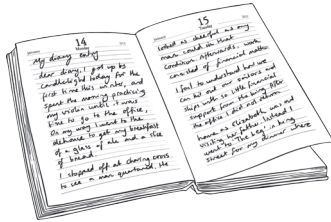 14
Monday
My diary entry
dear diary, I got up by
candlelight today for the
first time this winter, and
spent the morning practising
my violin until it was
time to go to the office,
On my way I went to the
alehouse to get my breakfast
of a glass of ale and a slice
of bread.
I stopped off at charing cross
to see a man quartered. He
15
Tuesday
looked as cheerful as any
man could in that
condition. Afterwards, work
consisted of financial matters.
I fail to understand how we
can let out our sailors and
ships with so little financial
support from the king. After
the office I did not return
home as Elizabeth was out
visiting her father. Instead I
went to the Leg in King
street for my dinner where